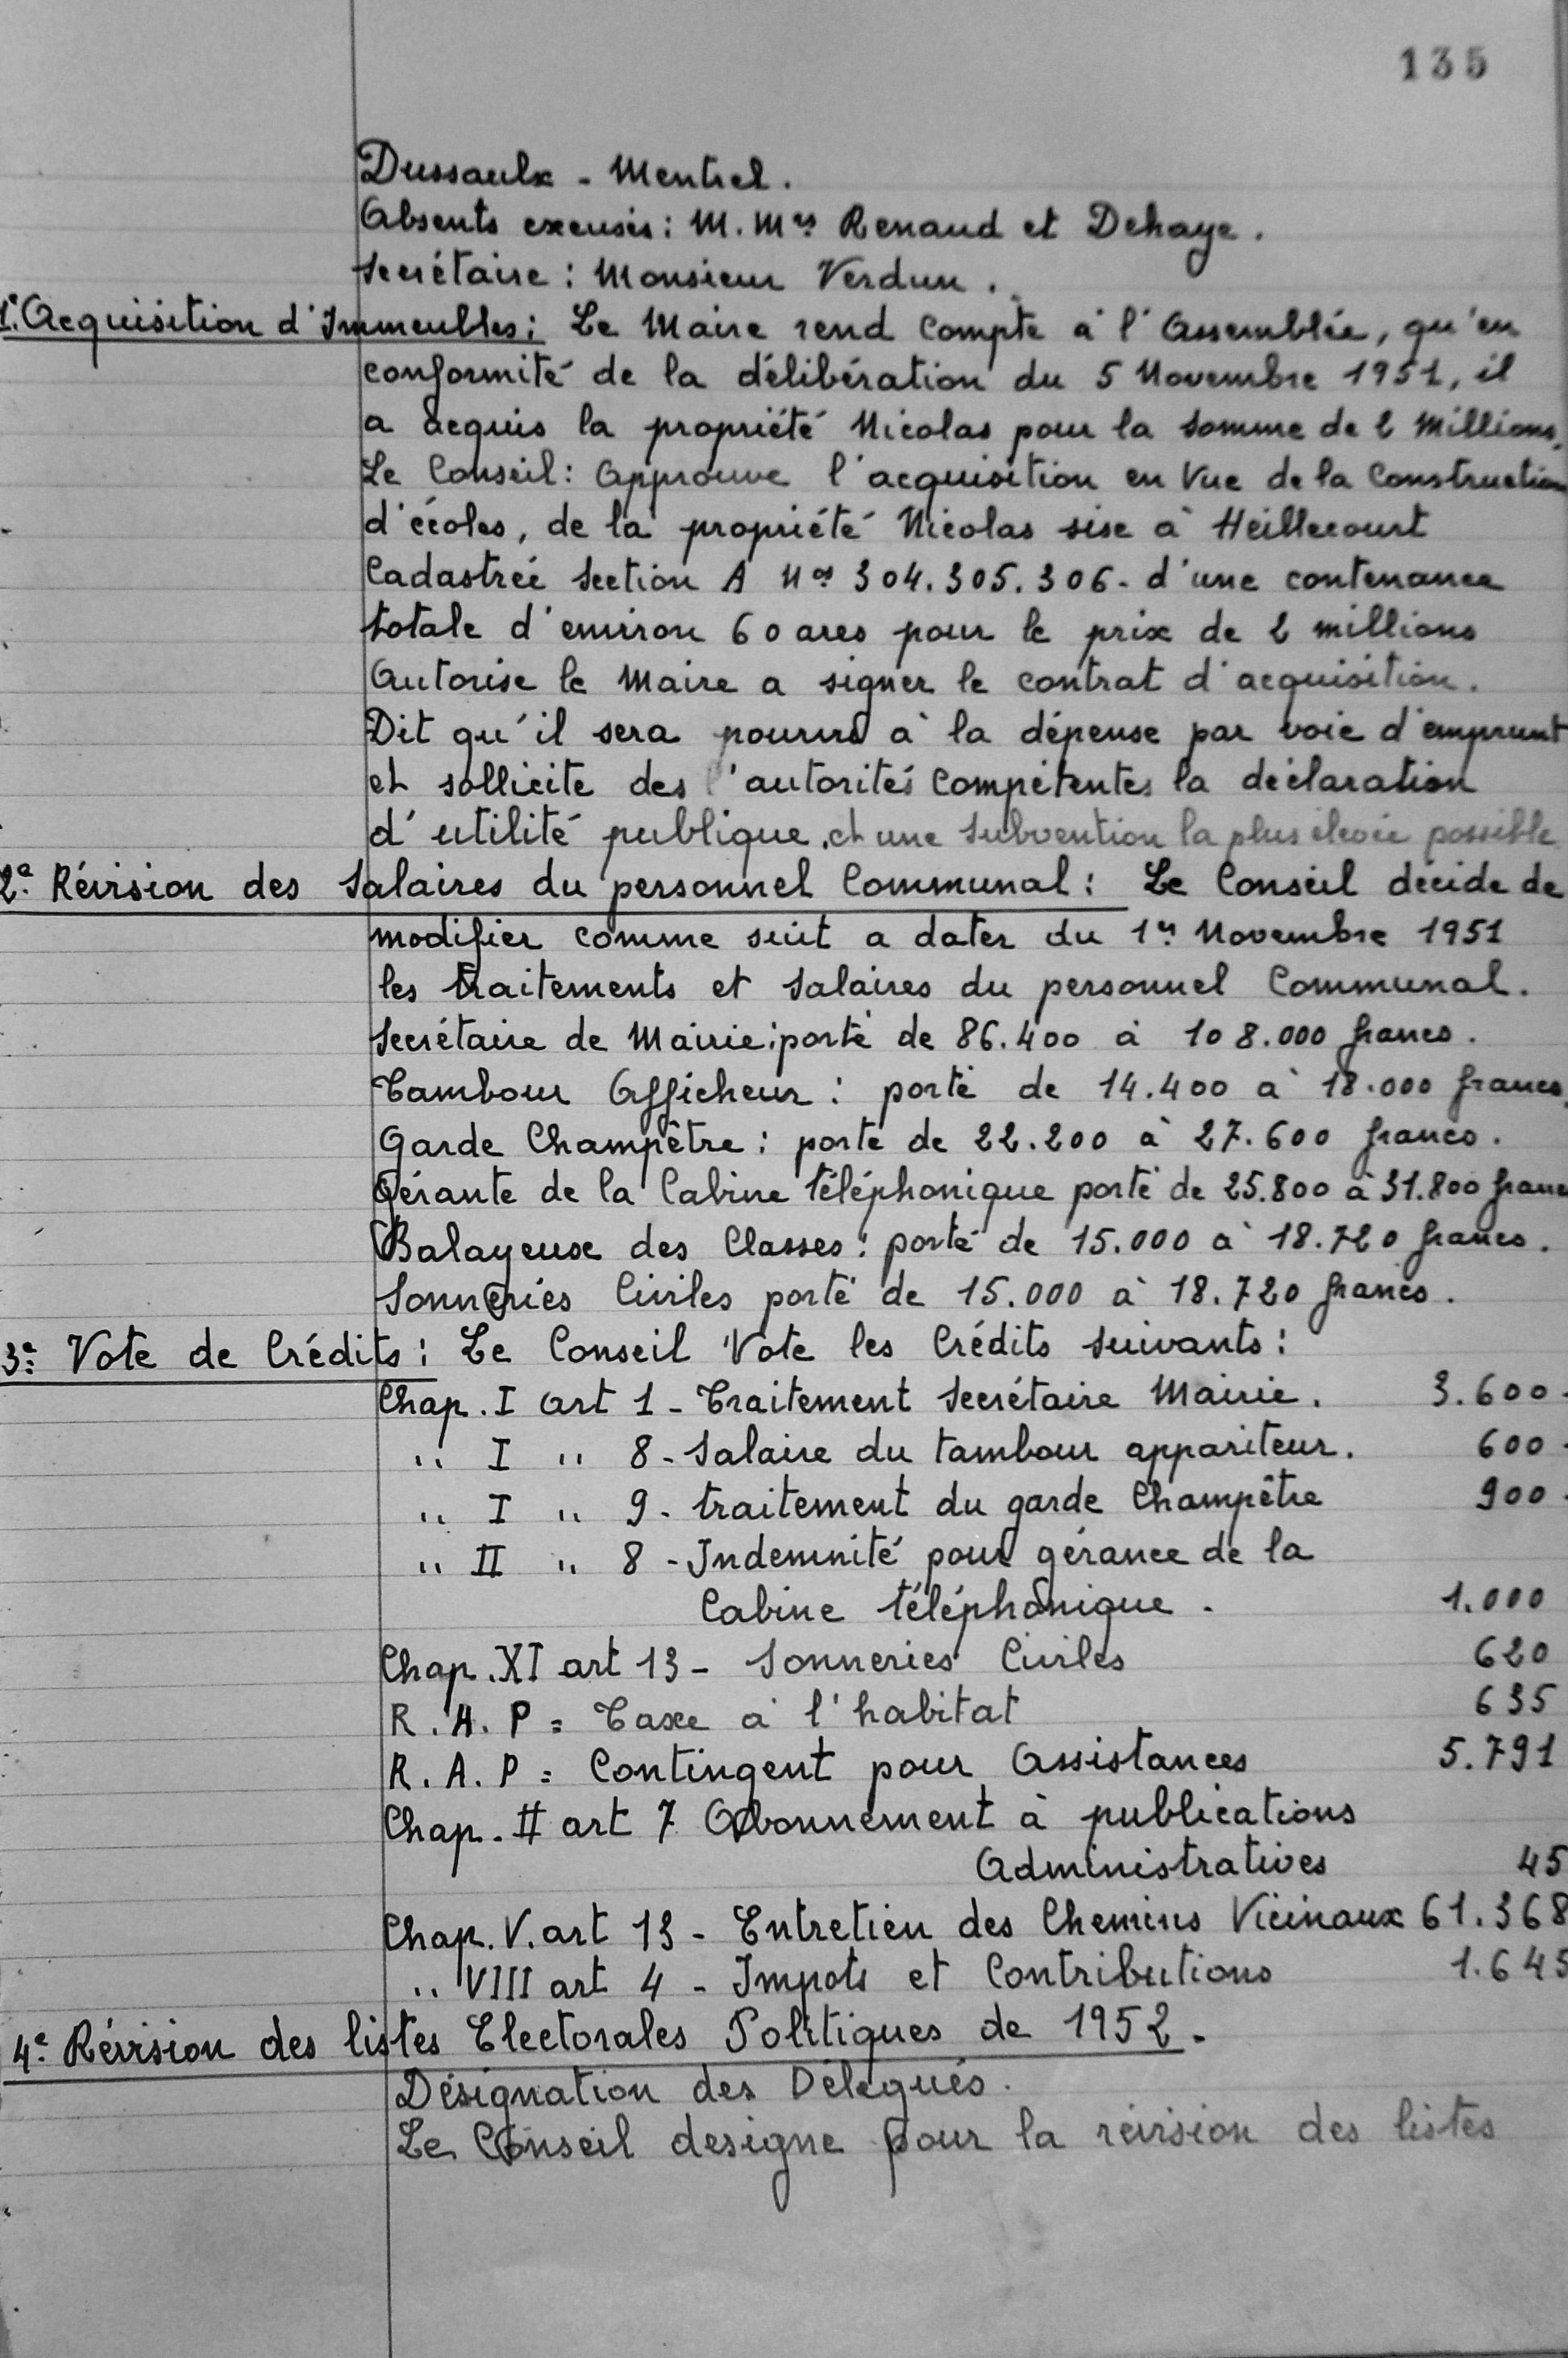 135
Dussaulx - Mentrel.
Absents excusés : M. Mrs Renaud et Dehaye.
Secrétaire : Monsieur Verdun.
1°. Acquisition d'Immeubles : Le Maire rend compte à l'Assemblée, qu'en
conformité de la délibération du 5 Novembre 1951, il
a acquis la propriété Nicolas pour la somme de 2 millions.
Le Conseil : Approuve l'acquisition en vue de la Construction
d'écoles, de la propriété Nicolas sise à Heillecourt
Cadastrée Section A Nos 304.305.306 - d'une contenance
totale d'environ 60 ares pour le prix de 2 millions
Autorise le Maire a signer le contrat d'acquisition.
Dit qu'il sera pourvu à la dépense par voie d'emprunt
et sollicite des l'autorités Compétentes la déclaration
d'utilité publique. et une subvention la plus élevée possible
2e. Révision des Salaires du personnel Communal : Le Conseil décide de
modifier comme suit a dater du 1er Novembre 1951
les traitements et Salaires du personnel Communal.
Secrétaire de Mairie : porté de 86.400 à 108.000 francs.
Tambour Afficheur : porté de 14.400 à 18.000 francs.
Garde Champêtre : porté de 22.200 à 27.600 francs.
Gérante de la Cabine Téléphonique porté de 25.800 à 31.800 franc
Balayeuse des Classes : porté de 15.000 à 18.720 francs.
Sonneries Civiles porté de 15.000 à 18.720 francs.
3e. Vote de Crédits : Le Conseil Vote les Crédits suivants :
Chap. I art 1 - Traitement Secrétaire Mairie. 3.600 -
" I " 8 - Salaire du tambour appariteur. 600 -
" I " 9 - traitement du garde Champêtre 900 -
" II " 8 - Indemnité pour gérance de la
Cabine téléphonique. 1.000
Chap. XI art 13 - Sonneries Civiles 620
R. A. P = Taxe à l'habitat 635
R. A. P = Contingent pour Assistances 5.791
Chap. II art 7 Abonnement à publications
Administratives 45
Chap. V. art 13 - Entretien des Chemins Vicinaux 61.368
" VIII art 4 - Impots et Contributions 1.645
4e. Révision des listes Electorales Politiques de 1952.
Désignation des Délégués.
Le Conseil designe pour la révision des listes